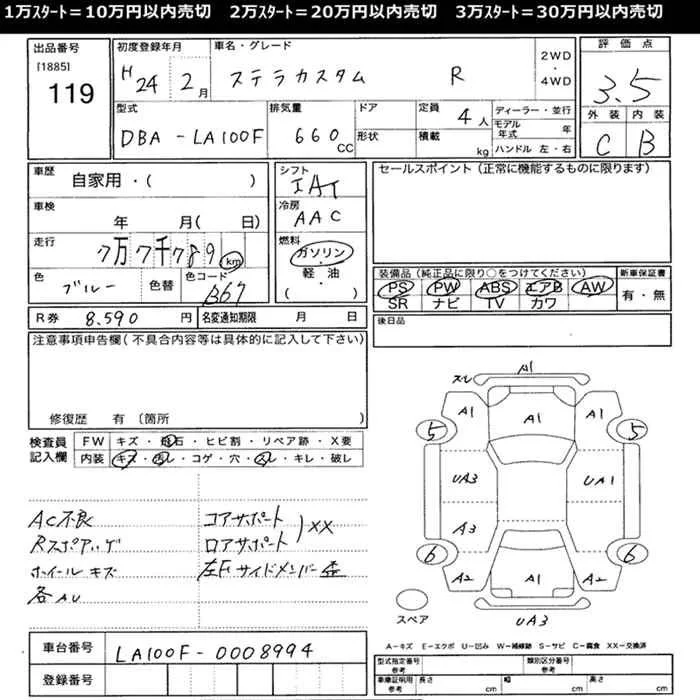 1万ｽﾀｰﾄ=10万円以内売切　2万ｽﾀｰﾄ=20万円以内売切　3万ｽﾀｰﾄ=30万円以内売切
出品番号
[1885]
119
初度登録年月
H24 2月
車名・グレード
ステラカスタム R
2WD
・
4WD
評価点
3.5
外装 内装
C B
型式
DBA-LA100F
排気量
660 CC
ドア
形状
定員 4人
積載 kg
ディーラー・並行
モデル年式 年
ハンドル 左・右
車歴
自家用・( )
車検
年 月( 日)
走行
7万7千789km
色
ブルー
色替
色コード
B67
シフト
IAT
冷房
AAC
燃料
ガソリン
・
軽・油
( )
セールスポイント(正常に機能するものに限ります)
装備品(純正品に限り○をつけてください)
PS PW ABS エアB AW
SR ナビ TV カワ
新車保証書
有・無
R券 8.590 円
名変通知期限 月 日
後日品
注意事項申告欄(不具合内容等は具体的に記入して下さい)
修復歴 有 〔箇所
検査員
記入欄
FW キズ・飛石・ヒビ割・リペア跡・X要
内装 キズ・汚レ・コゲ・穴・スレ・キレ・破レ
AC不良
Rスポアハゲ
ホイールキズ
各AU
コアサポート
ロアサポート
XX
左Fサイドメンバー歪
スレ A1
A1 A1 A1
5 5
UA3 UA1
A3 A1
6 6
A2 A1 A2
スペア
UA3
A-キズ E-エクボ U-凹み W-補修跡 S-サビ C-腐食 XX-交換済
車台番号
LA100F-0008994
登録番号
型式指定番号
参考
類別区分番号
参考
車庫証明用
参考
長さ cm
幅 cm
高さ cm